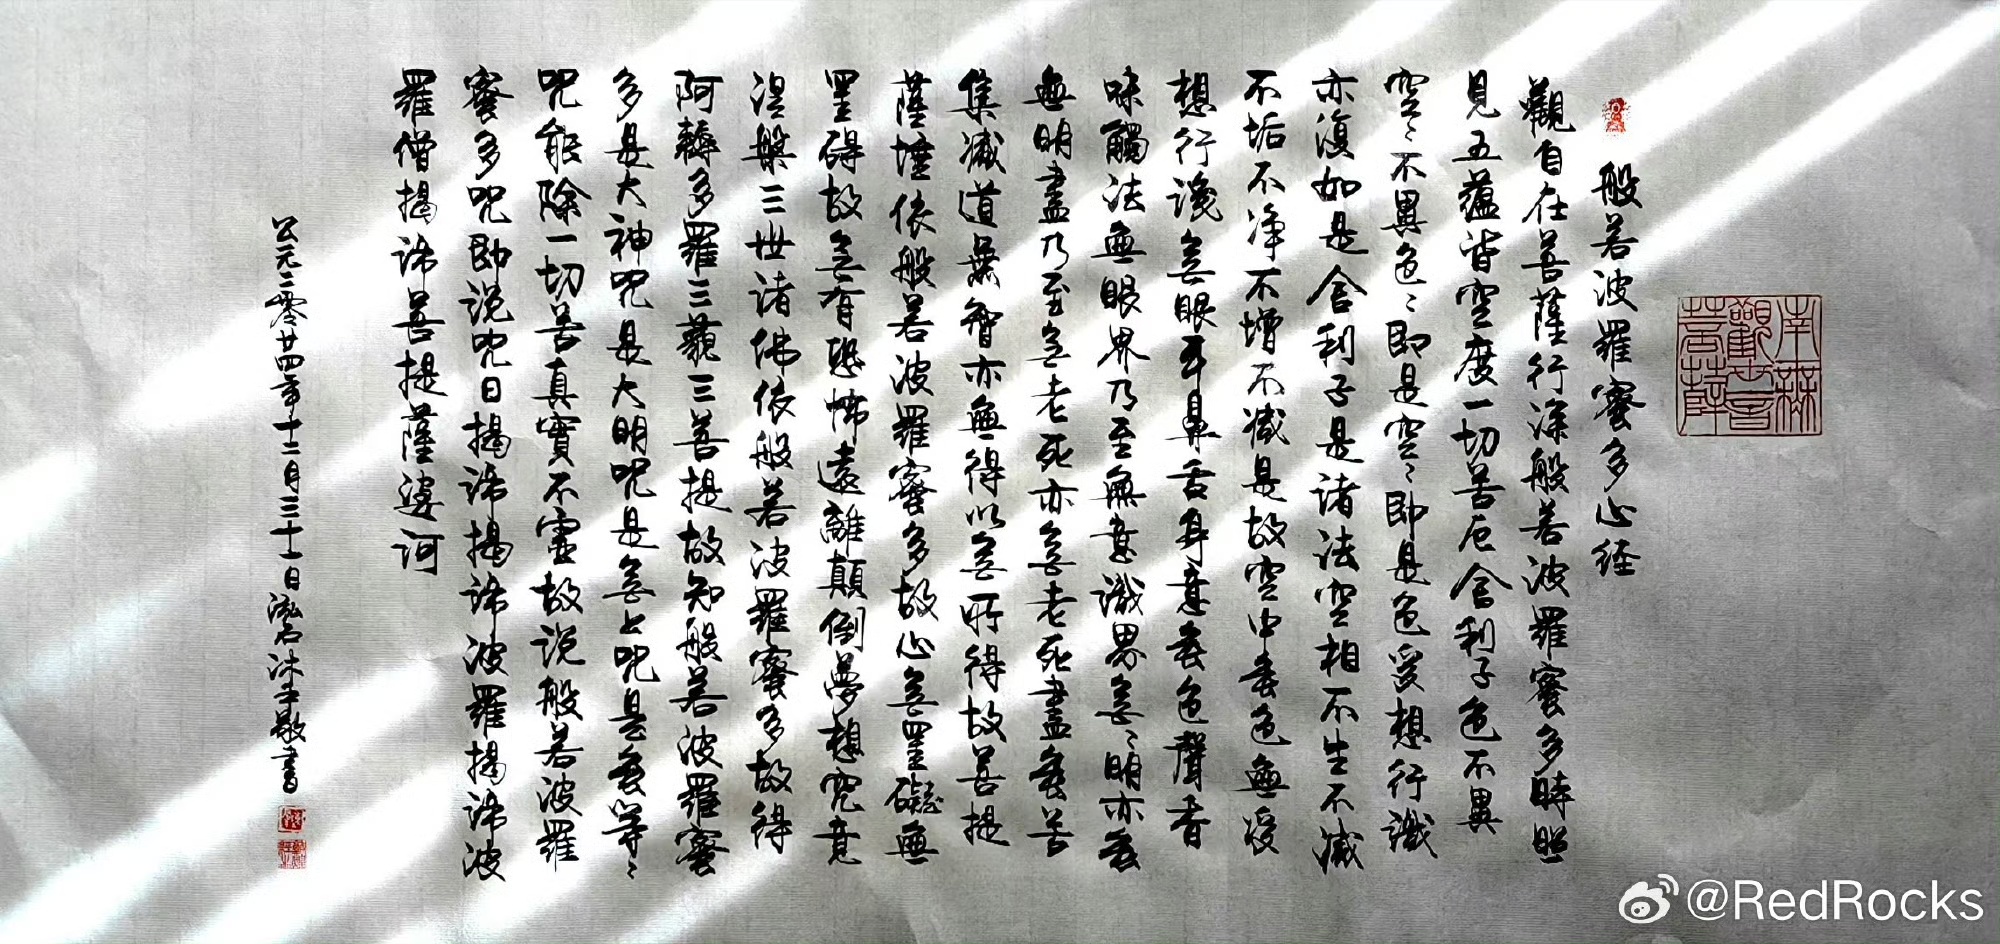 南無觀世音菩薩
般若波羅蜜多心経
觀自在菩薩行深般若波羅蜜多時照
見五蘊皆空度一切苦厄舍利子色不異
空〻不異色〻即是空〻即是色受想行識
亦復如是舍利子是諸法空相不生不滅
不垢不淨不增不減是故空中無色無受
想行識無眼耳鼻舌身意無色聲香
味觸法無眼界乃至無意識界無〻明亦無
無明盡乃至無老死亦無老死盡無苦
集滅道無智亦無得以無所得故菩提
薩埵依般若波羅蜜多故心無罣礙無
罣碍故無有恐怖遠離顛倒夢想究竟
涅槃三世諸佛依般若波羅蜜多故得
阿耨多羅三藐三菩提故知般若波羅蜜
多是大神咒是大明咒是無上咒是無等〻
咒能除一切苦真實不虛故說般若波羅
蜜多咒即說咒曰揭諦揭諦波羅揭諦波
羅僧揭諦菩提薩婆訶
公元二零廿四年十二月三十一日泓石沐手敬書
@RedRocks